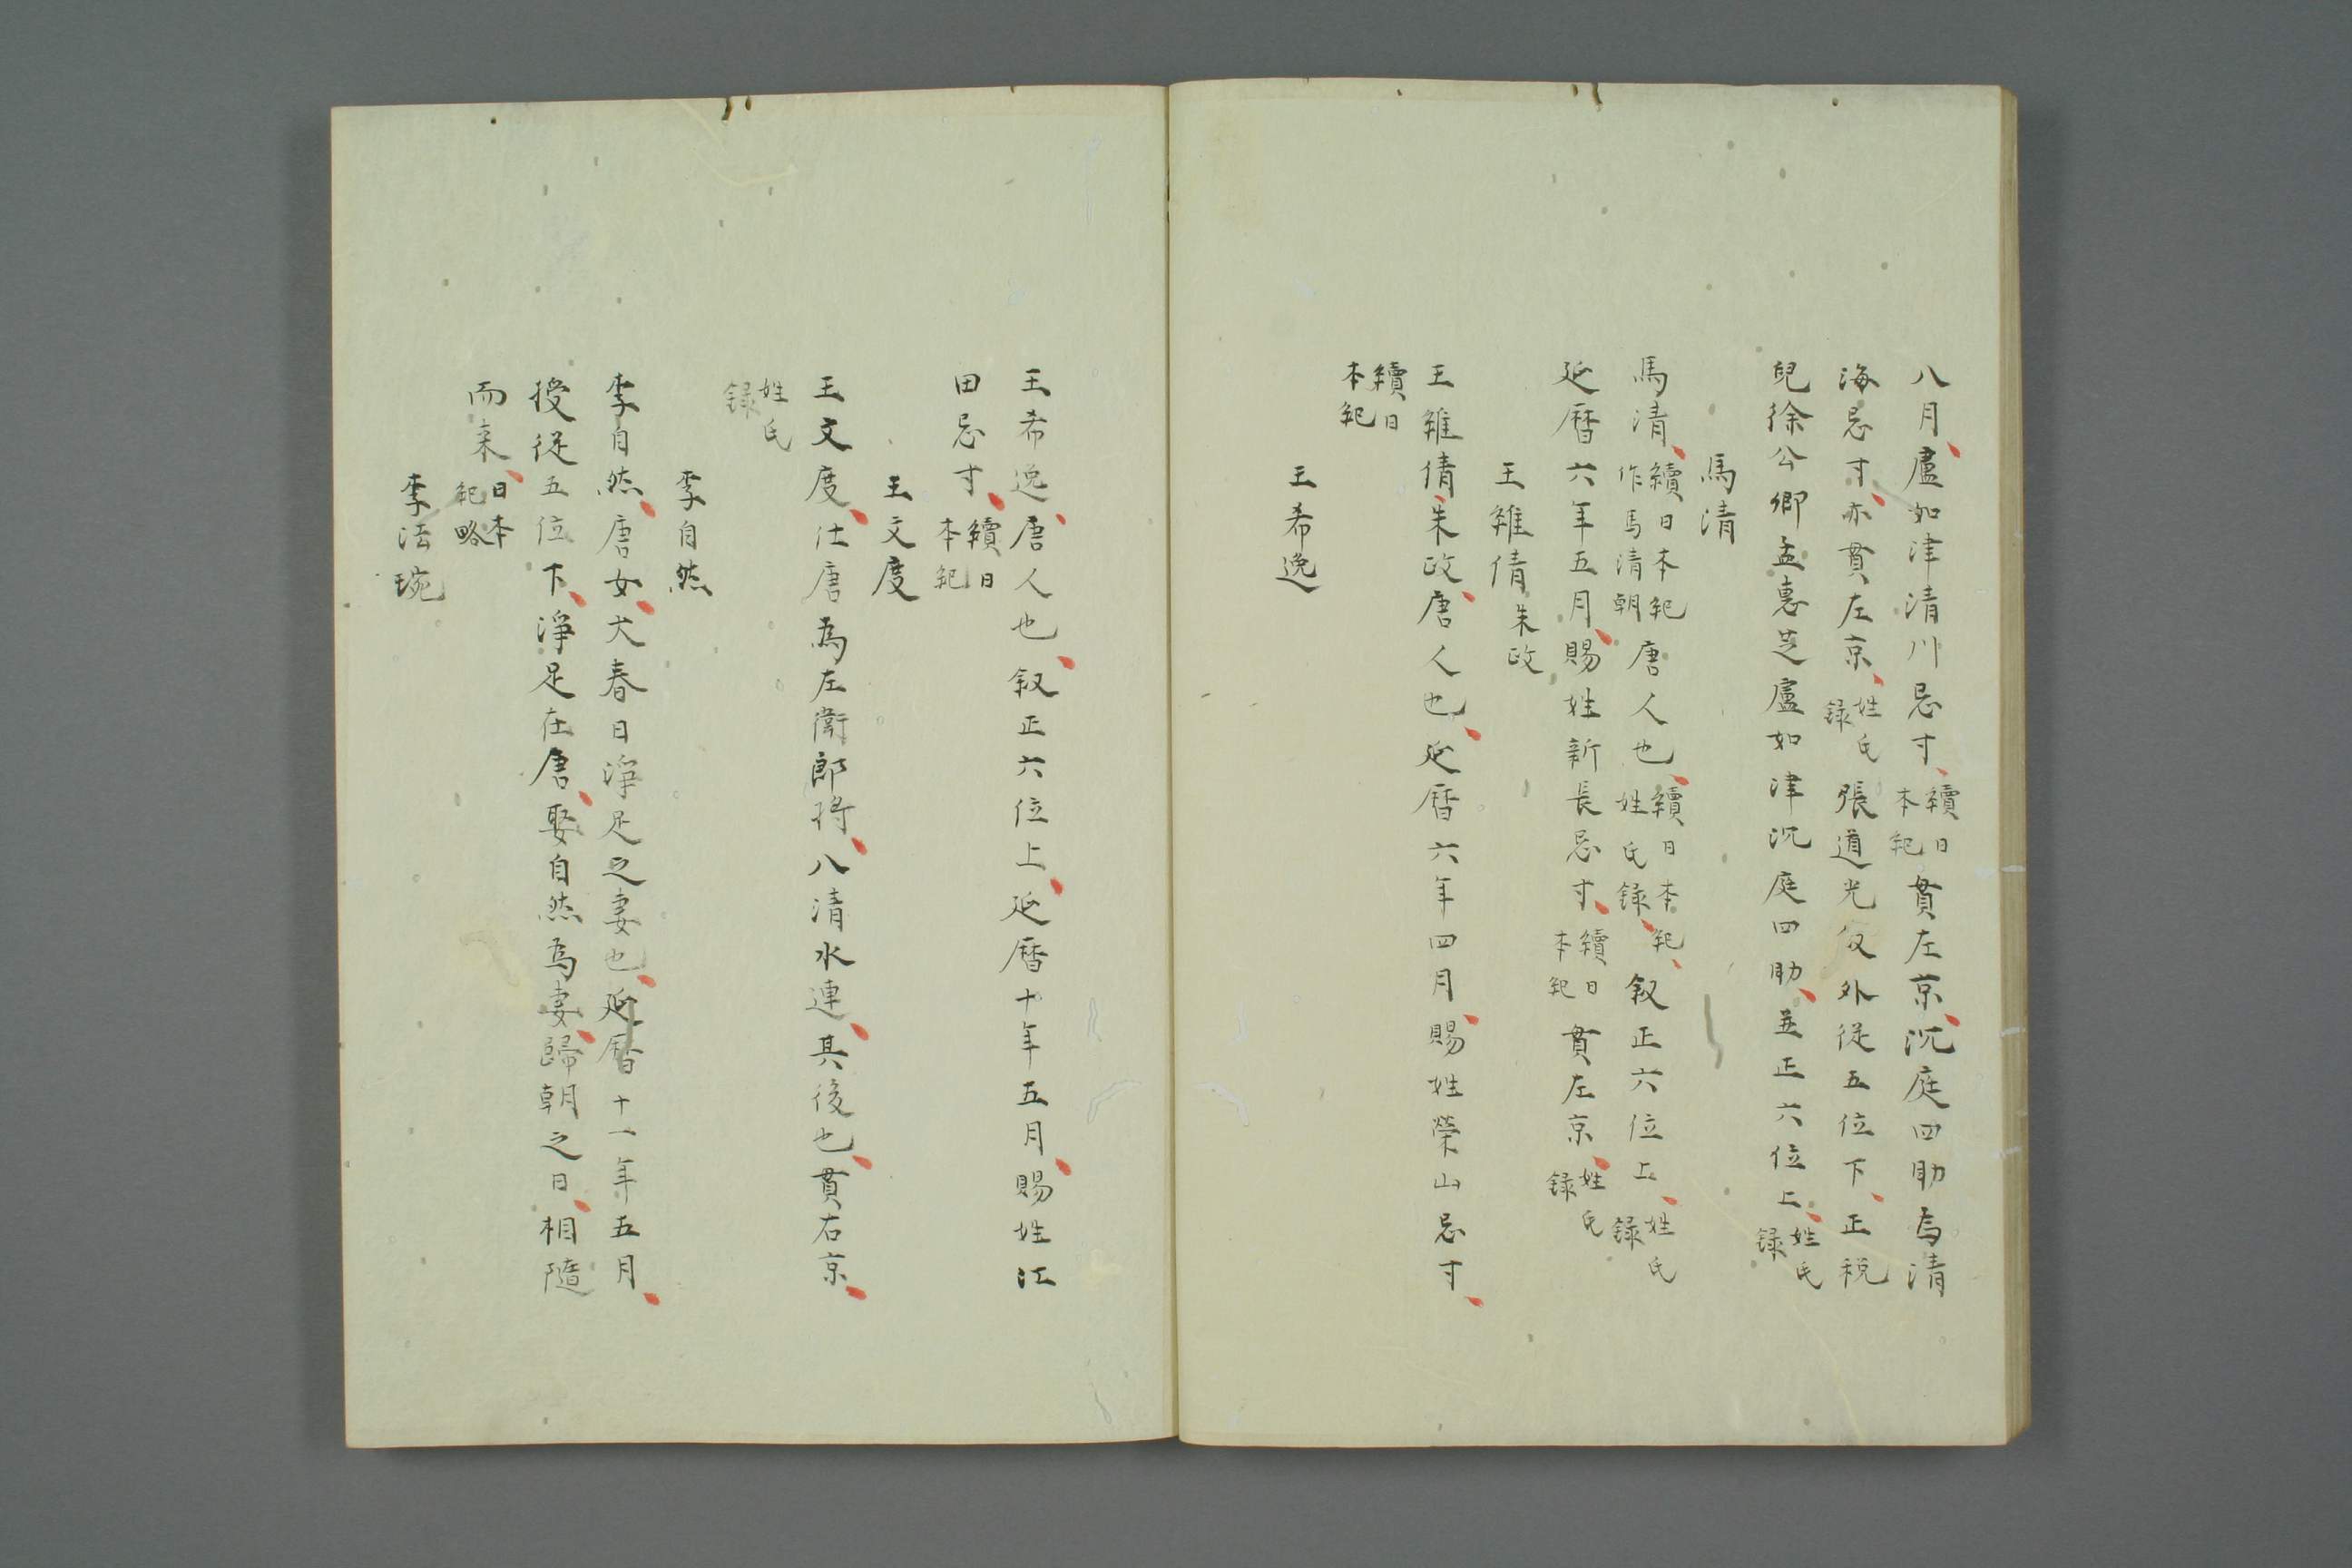 八月盧如津清川忌寸續日本紀貫左京沉庭四助為清
海忌寸亦貫左京姓氏録張道光叙外從五位下正税
兒徐公卿孟惠芝盧如津沉庭四助並正六位上姓氏録
馬清
馬清續日本紀作馬清朝唐人也續日本紀姓氏録叙正六位上姓氏録
延暦六年五月賜姓新長忌寸續日本紀貫左京姓氏録
王雜倩朱政
王雜倩朱政唐人也延暦六年四月賜姓榮山忌寸
續日本紀
王希逸
王希逸唐人也叙正六位上延暦十年五月賜姓江
田忌寸續日本紀
王文度
王文度仕唐為左衛郎将八清水連其後也貫右京
姓氏録
李自然
李自然唐女大春日淨足之妻也延暦十一年五月
授從五位下淨足在唐娶自然為妻歸朝之日相隨
而来日本紀略
李法琬